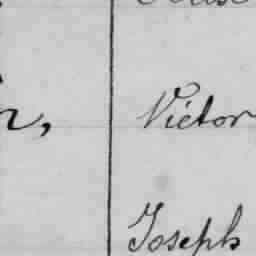 Victor
Joseph